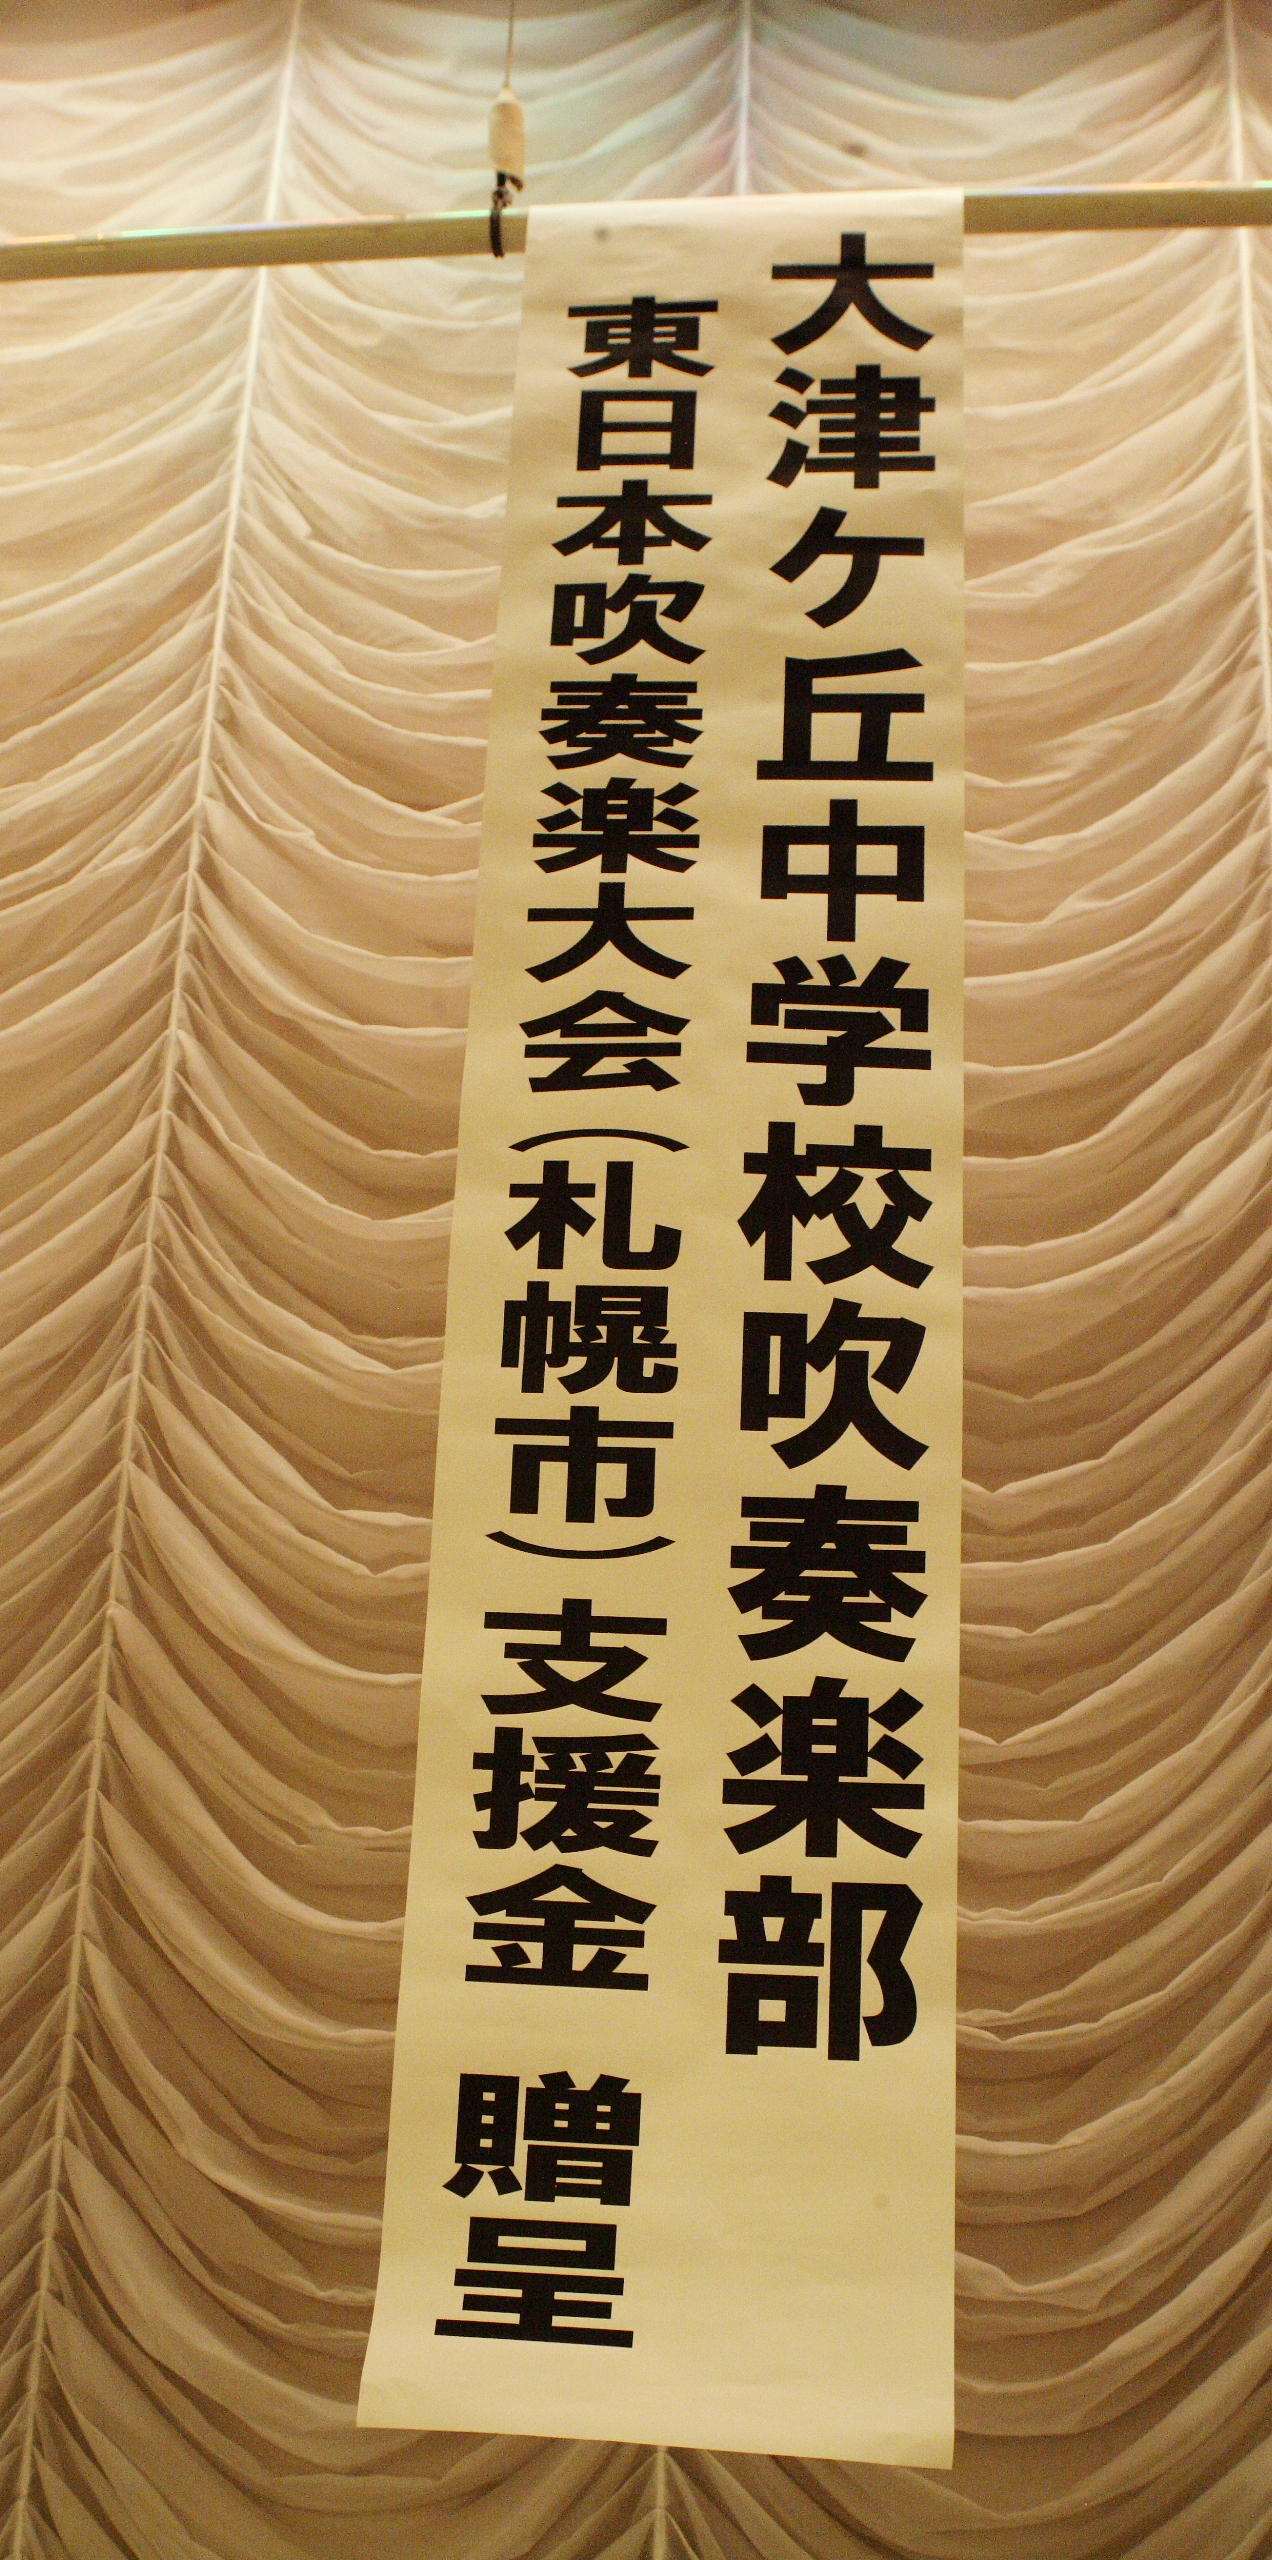 大津ケ丘中学校吹奏楽部
東日本吹奏楽大会(札幌市)支援金 贈呈